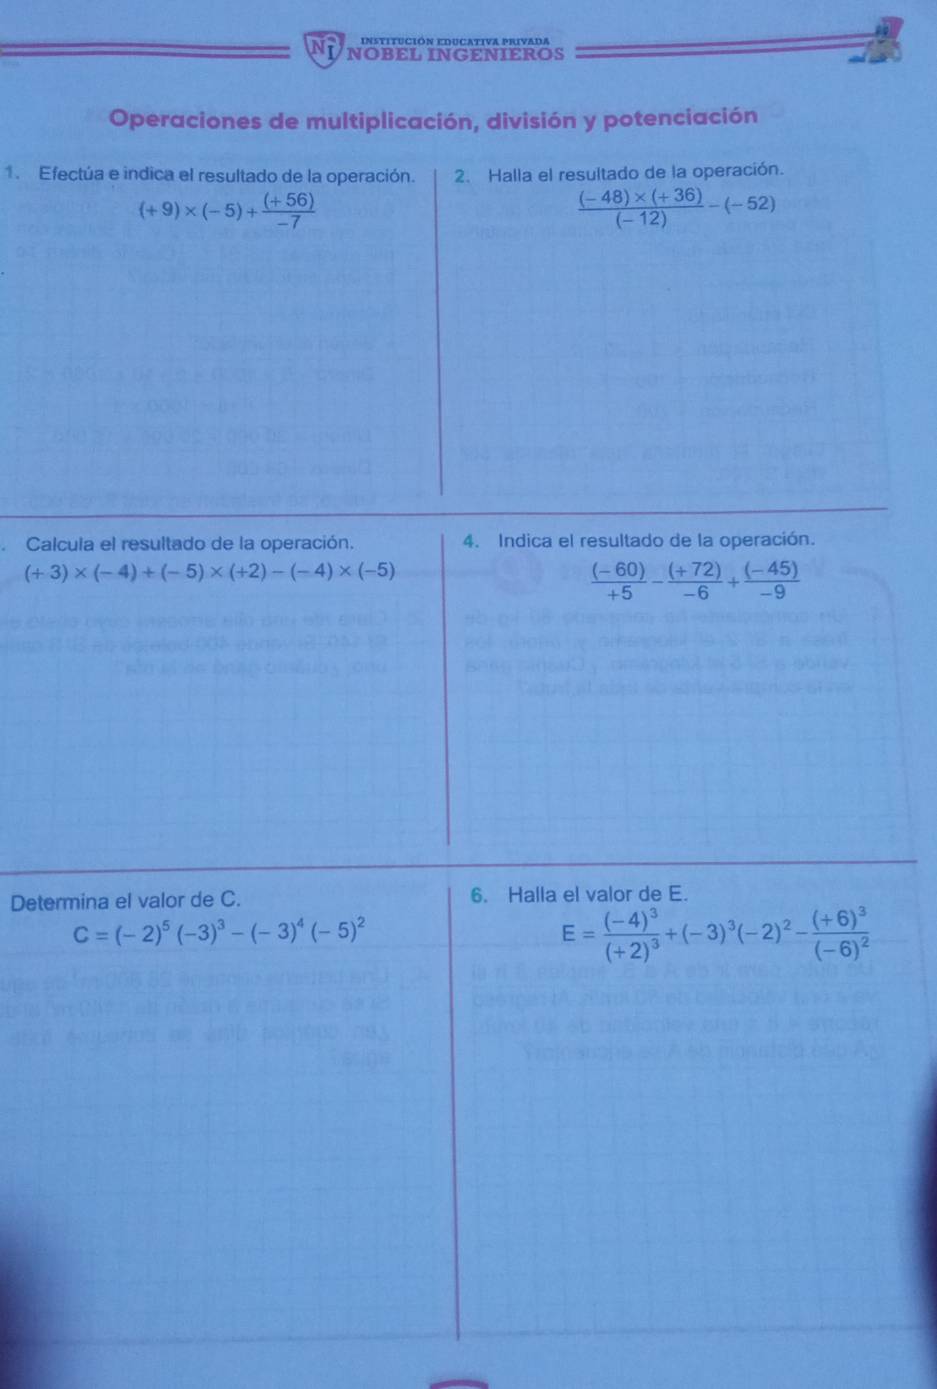 INSTITUCIÓN EDUCATIVA PRIVADA
NI NOBEL INGENIEROS
Operaciones de multiplicación, división y potenciación
1. Efectúa e indica el resultado de la operación.
(+9)×(−5)+(+56)/−7
2. Halla el resultado de la operación.
(−48)×(+36)/(−12)−(−52)
. Calcula el resultado de la operación.
(+3)×(−4)+(−5)×(+2)−(−4)×(−5)
4. Indica el resultado de la operación.
(−60)/+5−(+72)/−6+(−45)/−9
Determina el valor de C.
C=(−2)⁵(−3)³−(−3)⁴(−5)²
6. Halla el valor de E.
E=(−4)³/(+2)³+(−3)³(−2)²−(+6)³/(−6)²